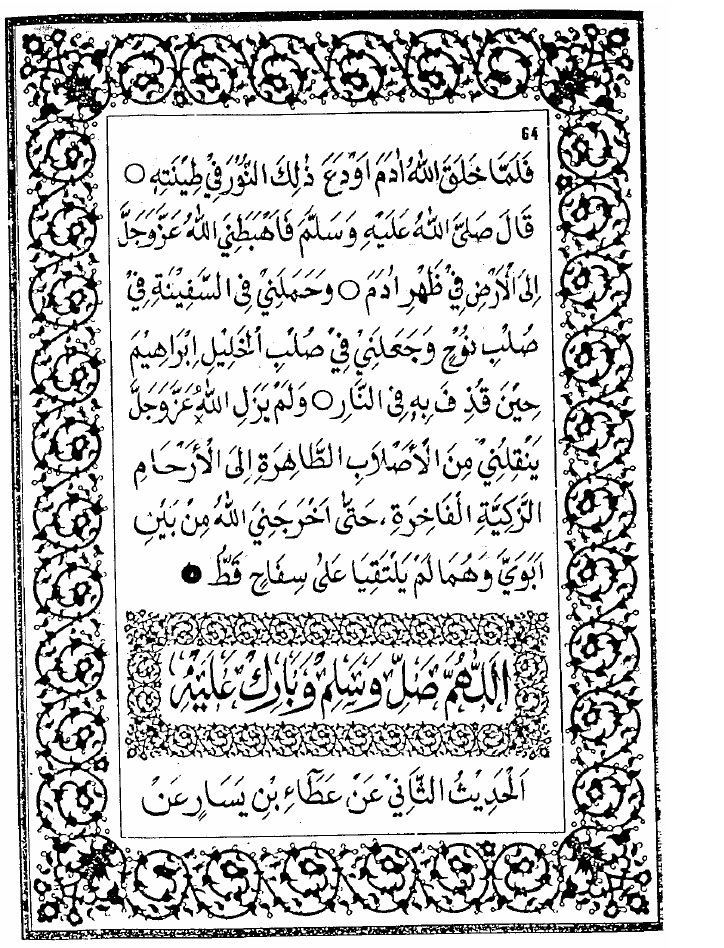 64
فَلَمَّا خَلَقَ اللهُ اٰدَمَ اَوْدَعَ ذٰلِكَ النُّوْرَ فِيْ طِيْنَتِهِ ○
قَالَ صَلَّى اللهُ عَلَيْهِ وَسَلَّمَ فَاَهْبَطَنِيَ اللهُ عَزَّ وَجَلَّ
اِلَى الْاَرْضِ فِيْ ظَهْرِ اٰدَمَ ○ وَحَمَلَنِيْ فِى السَّفِيْنَةِ فِيْ
صُلْبِ نُوْحٍ وَجَعَلَنِيْ فِيْ صُلْبِ الْخَلِيْلِ اِبْرَاهِيْمَ
حِيْنَ قُذِفَ بِهِ فِى النَّارِ ○ وَلَمْ يَزَلِ اللهُ عَزَّ وَجَلَّ
يَنْقِلُنِيْ مِنَ الْاَصْلَابِ الطَّاهِرَةِ اِلَى الْاَرْحَامِ
الزَّكِيَّةِ الْفَاخِرَةِ، حَتّٰى اَخْرَجَنِيَ اللهُ مِنْ بَيْنِ
اَبَوَيَّ وَهُمَا لَمْ يَلْتَقِيَا عَلٰى سِفَاحٍ قَطُّ
اَللّٰهُمَّ صَلِّ وَسَلِّمْ وَبَارِكْ عَلَيْهِ
اَلْحَدِيْثُ الثَّانِيْ عَنْ عَطَآءِ بْنِ يَسَارٍ عَنْ